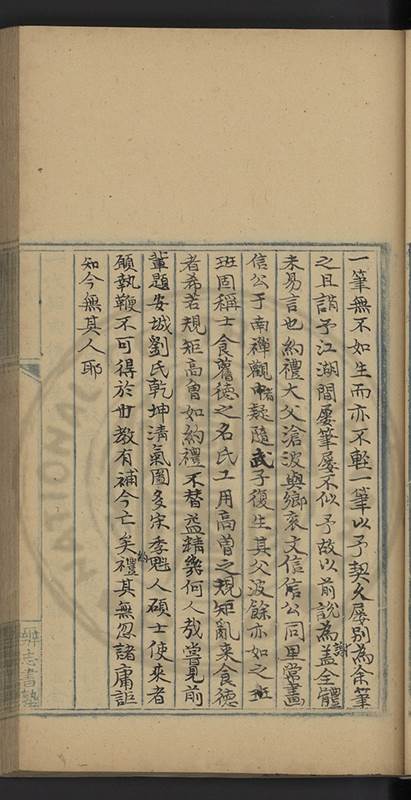 一筆無不如生而亦不輕一筆以予契久屢别為余筆
之且誚予江湖間屢筆屢不似予故以前說為謝盖全體
未易言也約禮大父滄波與鄉衮文信信公同里常畫
信公于南禪觀者疑隨武子復生其父波餘亦如之班
班固稱士食舊德之名氏工用高曾之規矩亂来食德
者希若規矩高曾如約禮不替益精幾何人哉嘗見前
輩題安城劉氏乾坤清氣圖多宋季魁人碩士使来者
願執鞭不可得於世教有補今亡矣約禮其無忽諸庸詎
知今無其人耶
辨志書塾